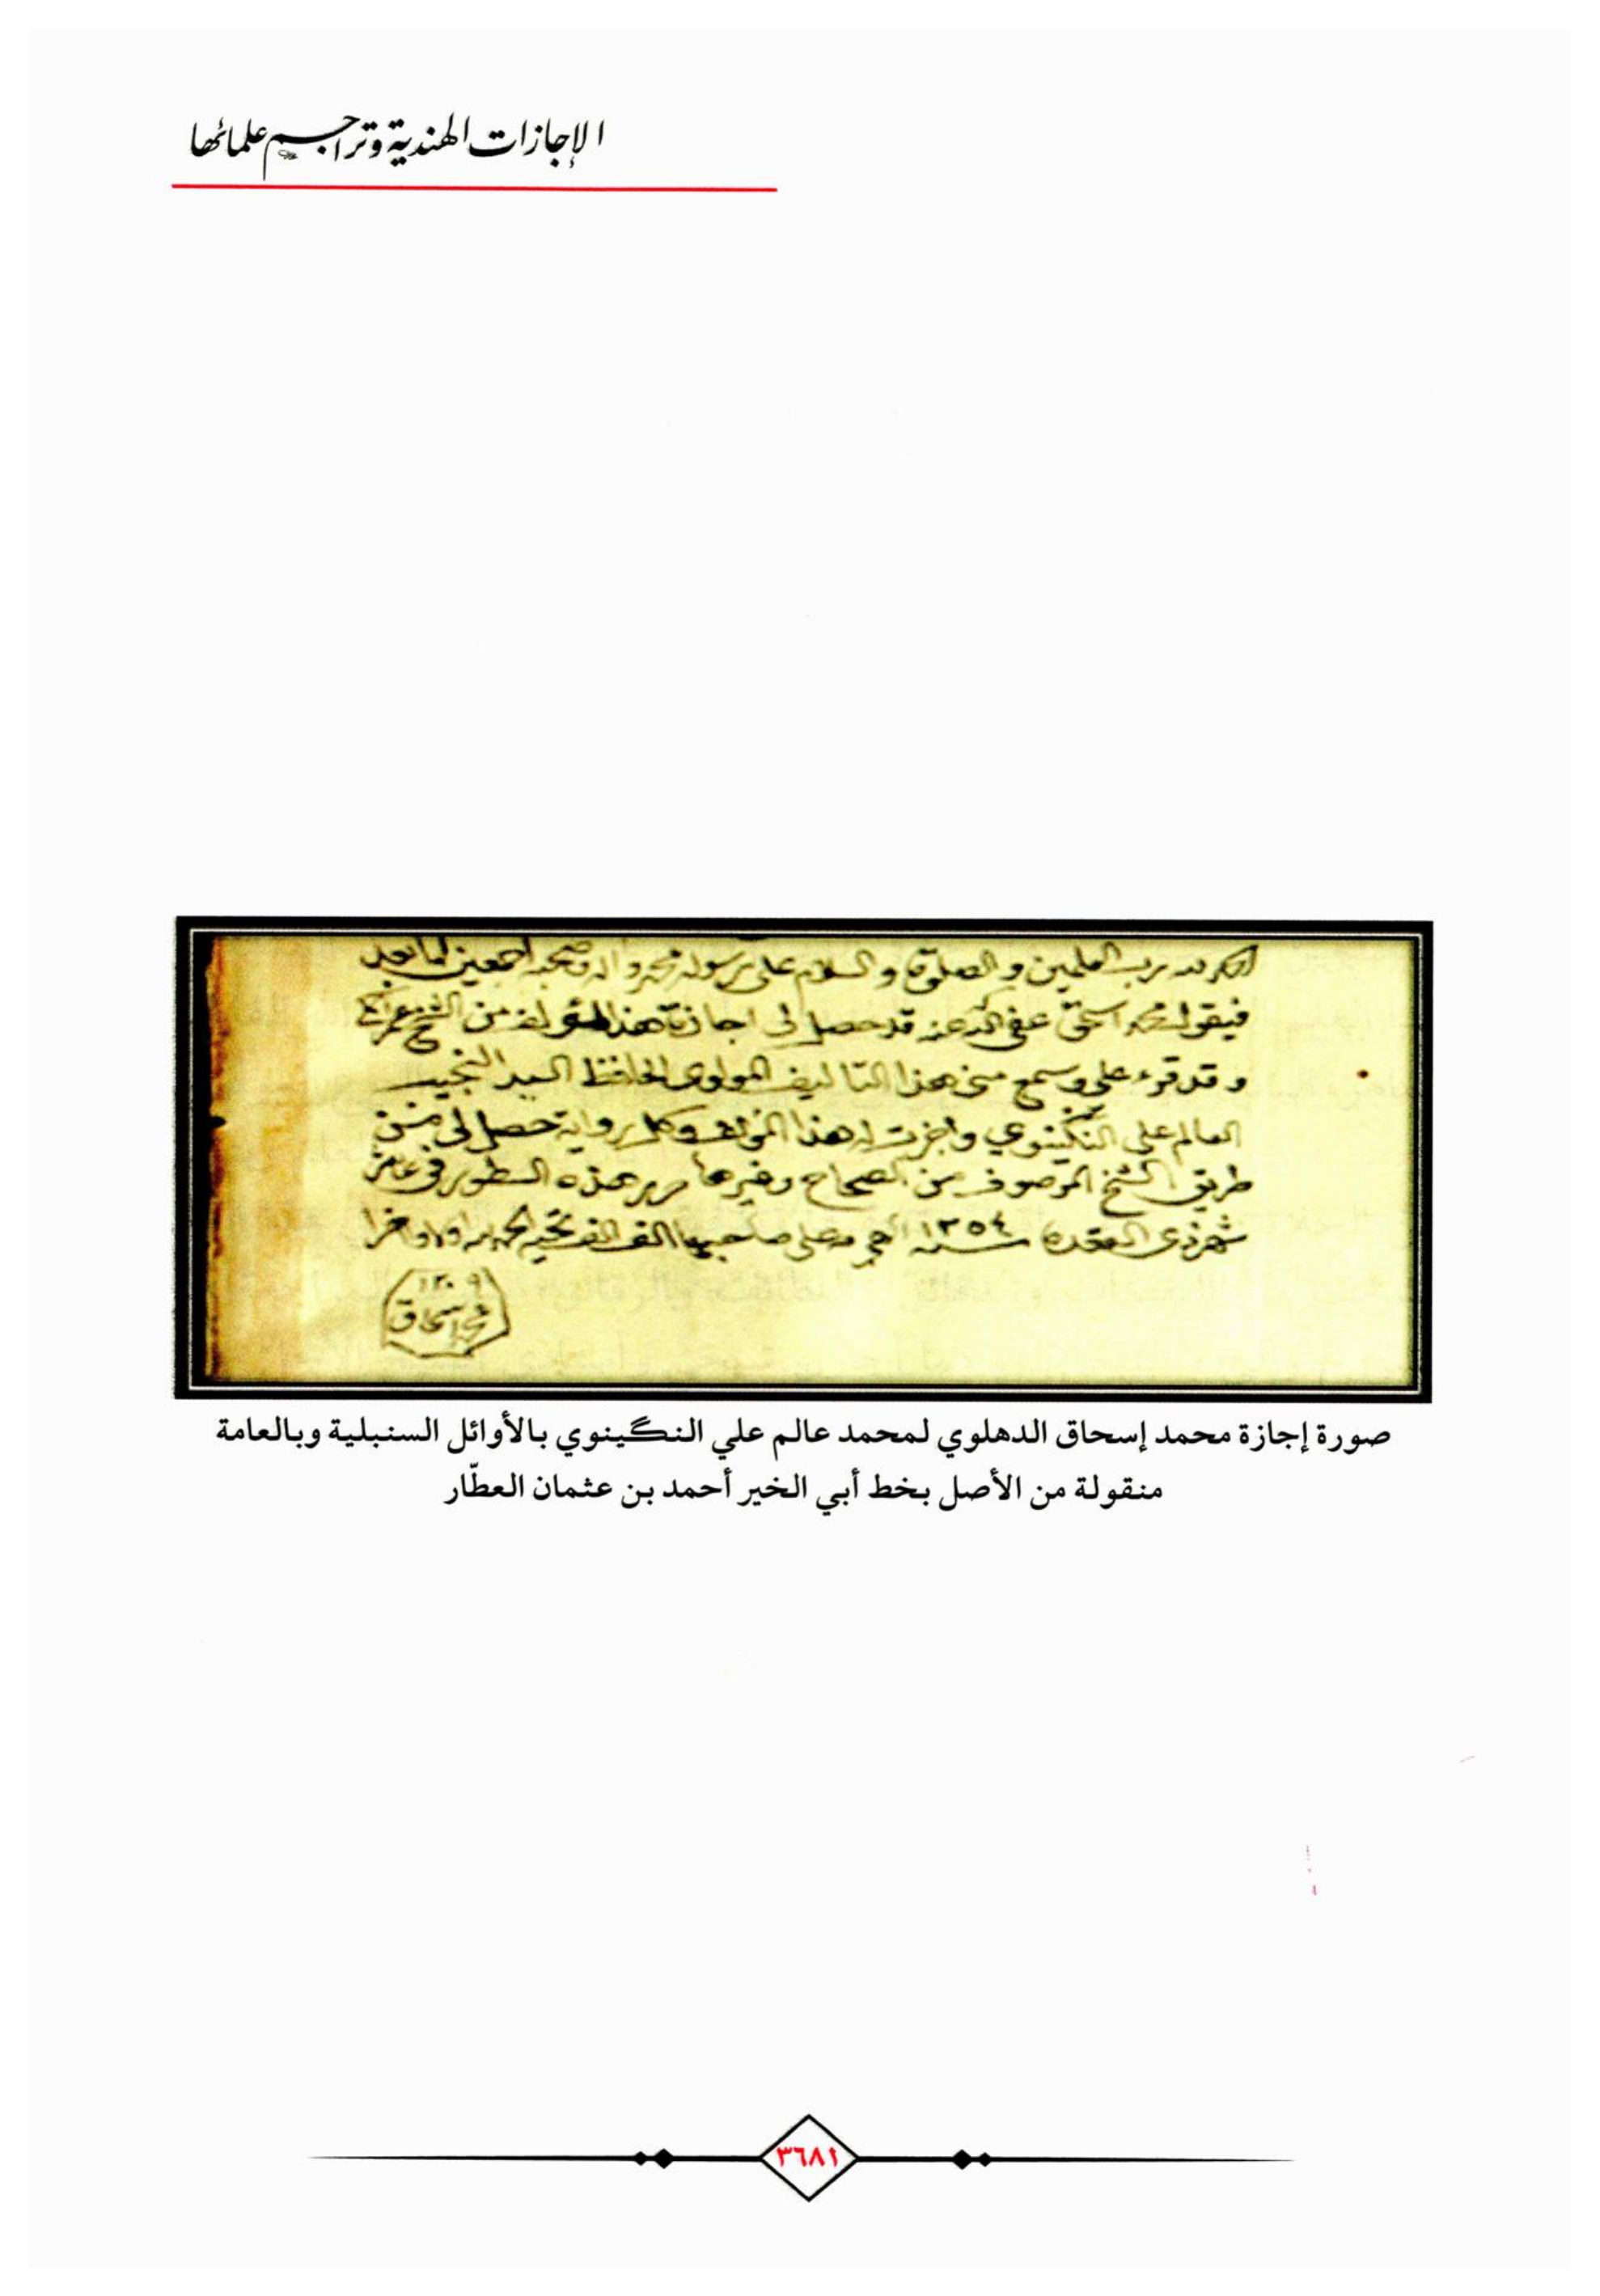 الإجازات الهندية وتراجم علمائها
الحمد لله رب العلمين والصلوة والسلام على رسوله محمد واله وصحبه اجمعين اما بعد
فيقول محمد اسحق عفي الله عنه قد حصل لي اجازة هذا المؤلف من الشيخ عمر
وقد قرء علي وسمع مني هذا التاليف المولوي الحافظ السيد النجيب
العالم علي النگينوي واجزت له هذا المؤلف وكل رواية حصل لي من
طريق الشيخ الموصوف من الصحاح وغيرها حرر هذه السطور في
شهر ذي القعدة سنه ١٢٥٤ الهجرة وعلى صاحبها الف الف تحية الحمد لله اولا واخرا
١٢٠٩
محمد إسحاق
صورة إجازة محمد إسحاق الدهلوي لمحمد عالم علي النگينوي بالأوائل السنبلية وبالعامة
منقولة من الأصل بخط أبي الخير أحمد بن عثمان العطّار
٣٦٨١